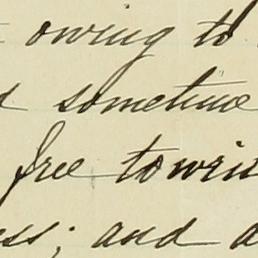 owing to
sometime
free to wri
ess; and a